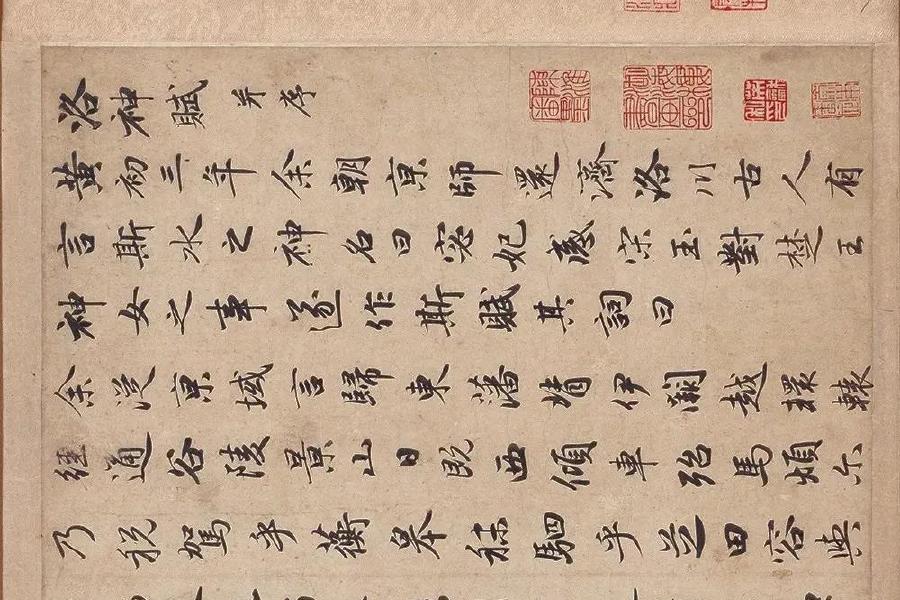 洛神賦并序
黃初三年余朝京師還濟洛川古人有
言斯水之神名曰宓妃感宋玉對楚王
神女之事遂作斯賦其詞曰
余從京域言歸東藩背伊闕越轘轅
經通谷陵景山日既西傾車殆馬煩尒
乃税駕乎蘅皋秣駟乎芝田容與